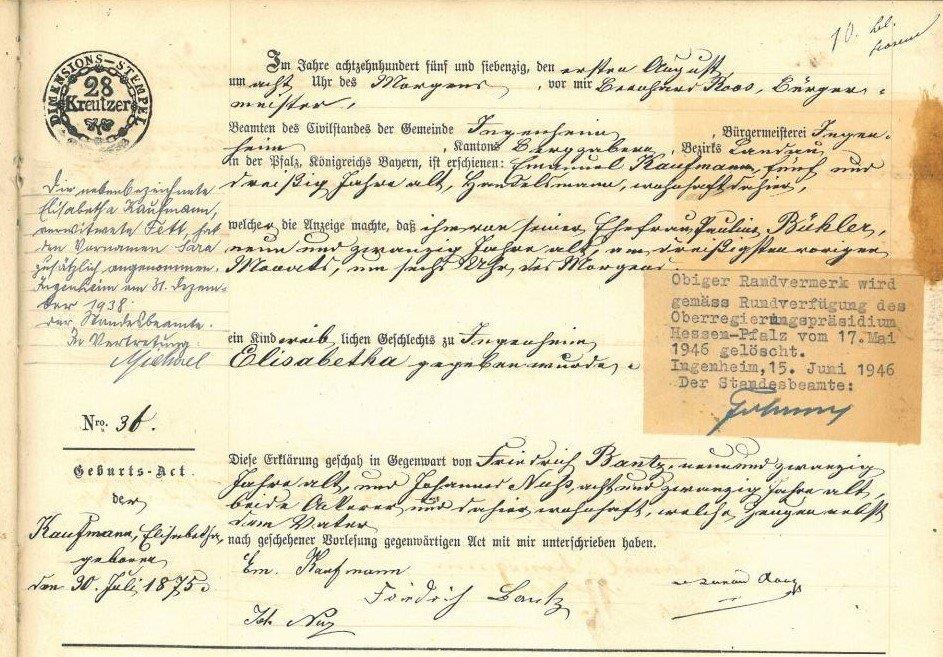 10. bel.
DIMENSIONS-STEMPEL
28
Kreutzer
Im Jahre achtzehnhundert fünf und siebenzig, den ersten August
um acht Uhr des Morgens, vor mir Bernhard Roos, Bürger-
meister,
Beamten des Civilstandes der Gemeinde Ingenheim, Bürgermeisterei Ingen-
heim Kantons Bergzabern, Bezirks Landau
in der Pfalz, Königreichs Bayern, ist erschienen: Emanuel Kaufmann, fünf und
dreißig Jahre alt, Handelsmann, wohnhaft dahier,
welcher die Anzeige machte, daß ihm von seiner Ehefrau Paulina Bühler,
neun und zwanzig Jahre alt, am dreißigsten vorigen
Monats, um sechs Uhr des Morgens
ein Kind weib lichen Geschlechts zu Ingenheim
Elisabetha gegeben wurde.
Die nebenbezeichnete
Elisabetha Kaufmann,
verwitwete Fett, hat
den Vornamen Sara
zusätzlich angenommen.
Ingenheim am 31. Dezem-
ber 1938
Der Standesbeamte.
In Vertretung:
Michael
Obiger Randvermerk wird
gemäss Rundverfügung des
Oberregierungspräsidium
Hessen-Pfalz vom 17. Mai
1946 gelöscht.
Ingenheim, 15. Juni 1946
Der Standesbeamte:
Nro. 36.
Geburts-Act
der
Kaufmann, Elisabetha,
geboren
den 30. Juli 1875.
Diese Erklärung geschah in Gegenwart von Friedrich Bantz, neun und zwanzig
Jahre alt, und Johannes Nuß, acht und zwanzig Jahre alt,
beide Ackerer und dahier wohnhaft, welche Zeugen nebst
dem Vater
nach geschehener Vorlesung gegenwärtigen Act mit mir unterschrieben haben.
Em. Kaufmann
Friedrich Bantz
Joh. Nuß